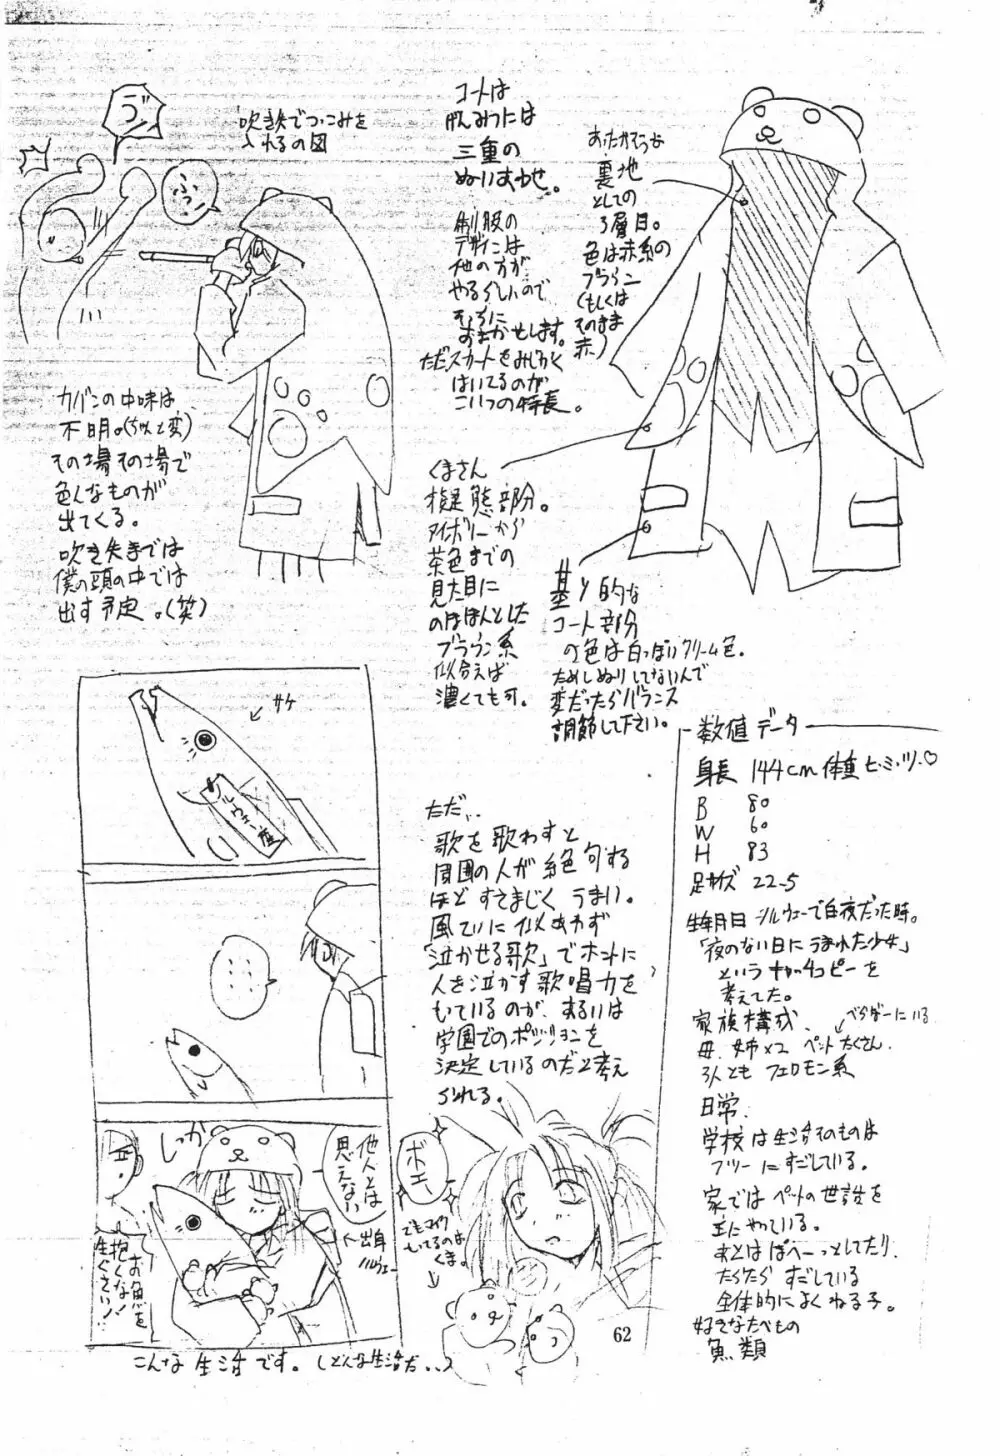 ゴッ
ふっ
吹き矢でつっこみを
入れるの図
コートは
げんみつには
三重の
ぬいあわせ。
制服の
デザインは
他の方が
やるらしいので
そちらに
おまかせします。
ただスカートをみじかく
はいてるのが
こいつの特長。
あったかそうな
裏地
としての
3層目。
色は赤系の
ブラウン
(もしくは
そのまま
赤)
カバンの中味は
不明。(ちょっと変)
その場その場で
色んなものが
出てくる。
吹き矢までは
僕の頭の中では
出す予定。(笑)
くまさん
擬態部分。
アイボリーから
茶色までの
見た目に
のほほんとした
ブラウン系
似合えば
濃くても可。
基本的な
コート部分
の色は白っぽいクリーム色。
ためしぬりしてないんで
変だったらバランス
調節して下さい。
サケ
ノルウェー産
しっか
他人とは
思えない
出身
ノルウェー
お魚を
抱くな!
生ぐさい!
こんな生活です。(どんな生活だ..)
ただ..
歌を歌わすと
周囲の人が絶句する
ほどすさまじくうまい。
風ていに似あわず
「泣かせる歌」でホントに
人を泣かす歌唱力を
もっているのが、あるいは
学園でのポジションを
決定しているのだと考え
られる。
ボエー
でもマイク
もってるのは
くま。
数値データ
身長 144cm 体重 ヒ・ミ・ツ・♡
B 80
W 60
H 83
足サイズ 22.5
生年月日 ノルウェーで白夜だった時。
「夜のない日にうまれた少女」
というキャッチコピーを
考えてた。
家族構成.
べらんだーにいる
母.姉×2 ペットたくさん.
3人とも フェロモン系
日常.
学校は生活そのものは
フツーにすごしている。
家ではペットの世話を
主にやっている。
あとはぽへーっとしてたり.
だらだらすごしている
全体的によくねる子。
好きなたべもの
魚類
62